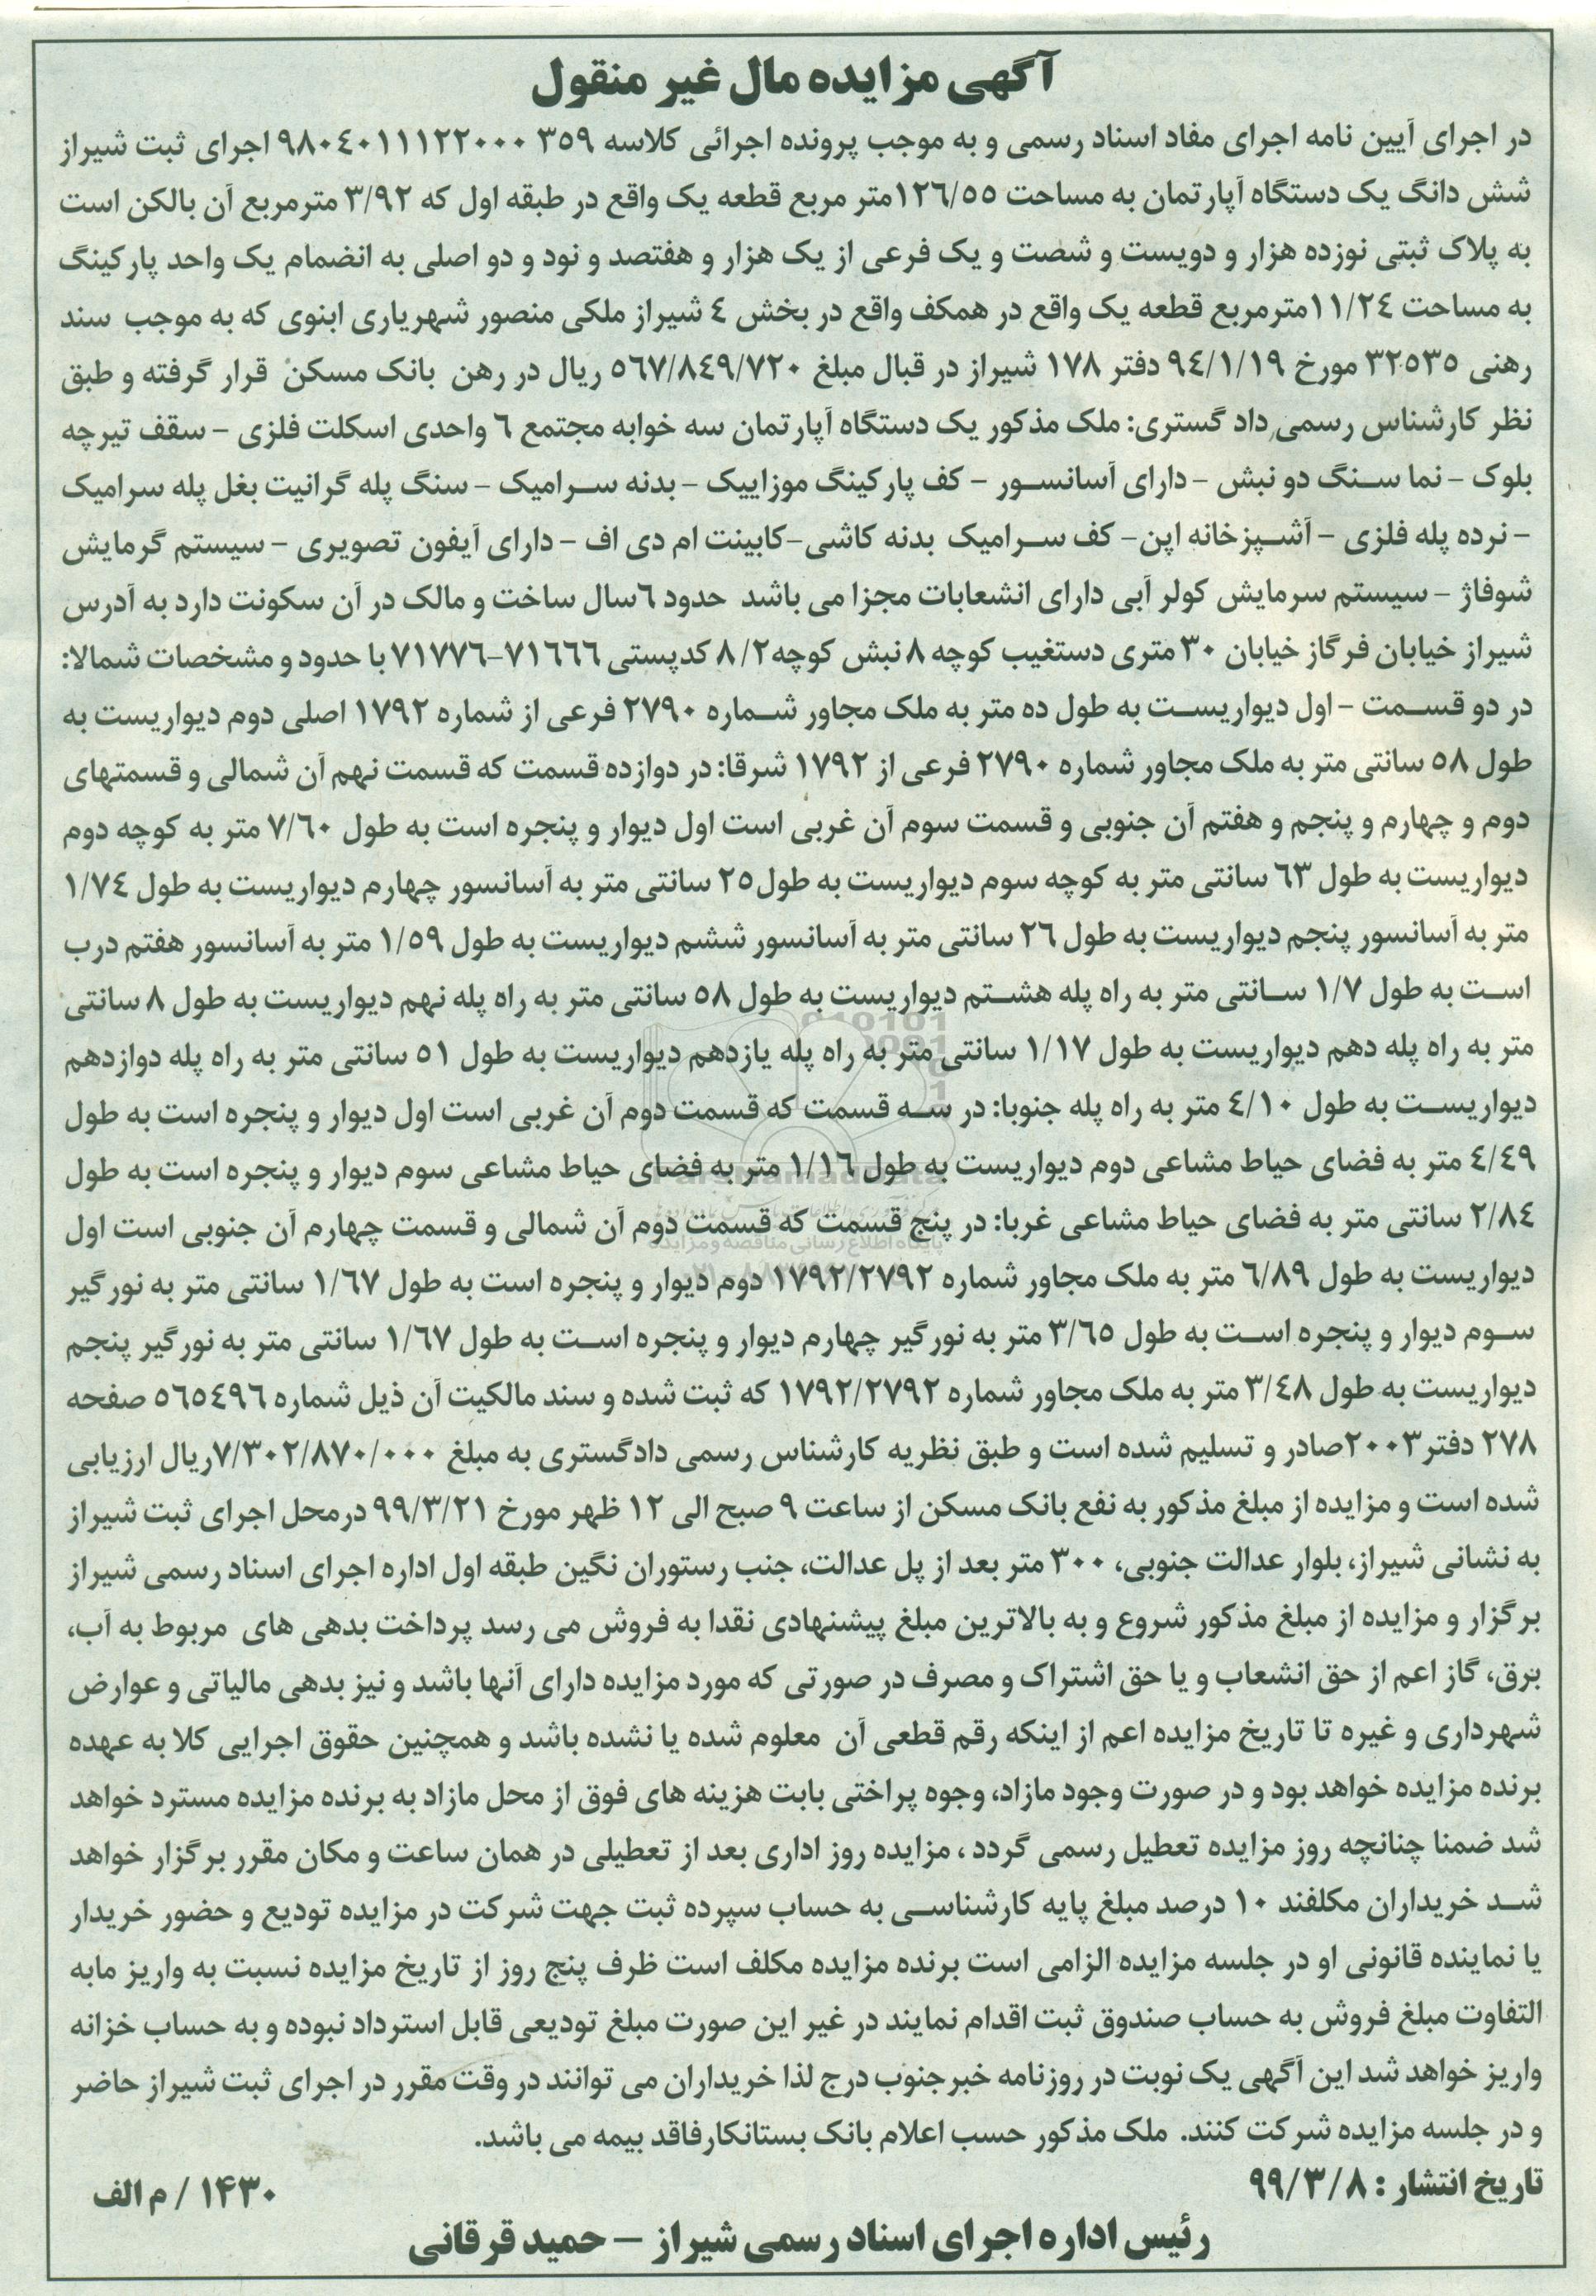 آگهی مزایده مال غیر منقول
در اجرای آیین نامه اجرای مفاد اسناد رسمی و به موجب پرونده اجرائی کلاسه ۹۸۰٤۰۱۱۱۲۲۰۰۰۳۵۹ اجرای ثبت شیراز
شش دانگ یک دستگاه آپارتمان به مساحت ۱۲٦/٥٥متر مربع قطعه یک واقع در طبقه اول که ۳/۹۲ مترمربع آن بالکن است
به پلاک ثبتی نوزده هزار و دویست و شصت و یک فرعی از یک هزار و هفتصد و نود و دو اصلی به انضمام یک واحد پارکینگ
به مساحت ۱۱/۲٤مترمربع قطعه یک واقع در همکف واقع در بخش ٤ شیراز ملکی منصور شهریاری ابنوی که به موجب سند
رهنی ۳۲٥۳٥ مورخ ۹٤/۱/۱۹ دفتر ۱۷۸ شیراز در قبال مبلغ ٥٦۷/۸٤۹/۷۲۰ ریال در رهن بانک مسکن قرار گرفته و طبق
نظر کارشناس رسمی داد گستری: ملک مذکور یک دستگاه آپارتمان سه خوابه مجتمع ٦ واحدی اسکلت فلزی – سقف تیرچه
بلوک – نما سنگ دو نبش – دارای آسانسور – کف پارکینگ موزاییک – بدنه سرامیک – سنگ پله گرانیت بغل پله سرامیک
– نرده پله فلزی – آشپزخانه اپن– کف سرامیک بدنه کاشی–کابینت ام دی اف – دارای آیفون تصویری – سیستم گرمایش
شوفاژ – سیستم سرمایش کولر آبی دارای انشعابات مجزا می باشد حدود ٦سال ساخت و مالک در آن سکونت دارد به آدرس
شیراز خیابان فرگاز خیابان ۳۰ متری دستغیب کوچه ۸ نبش کوچه۸/۲ کدپستی ۷۱٦٦٦–۷۱۷۷٦ با حدود و مشخصات شمالا:
در دو قسمت – اول دیواریست به طول ده متر به ملک مجاور شماره ۲۷۹۰ فرعی از شماره ۱۷۹۲ اصلی دوم دیواریست به
طول ٥۸ سانتی متر به ملک مجاور شماره ۲۷۹۰ فرعی از ۱۷۹۲ شرقا: در دوازده قسمت که قسمت نهم آن شمالی و قسمتهای
دوم و چهارم و پنجم و هفتم آن جنوبی و قسمت سوم آن غربی است اول دیوار و پنجره است به طول ۷/٦۰ متر به کوچه دوم
دیواریست به طول ٦۳ سانتی متر به کوچه سوم دیواریست به طول۲٥ سانتی متر به آسانسور چهارم دیواریست به طول ۱/۷٤
متر به آسانسور پنجم دیواریست به طول ۲٦ سانتی متر به آسانسور ششم دیواریست به طول ۱/٥۹ متر به آسانسور هفتم درب
است به طول ۱/۷ سانتی متر به راه پله هشتم دیواریست به طول ٥۸ سانتی متر به راه پله نهم دیواریست به طول ۸ سانتی
متر به راه پله دهم دیواریست به طول ۱/۱۷ سانتی متر به راه پله یازدهم دیواریست به طول ٥۱ سانتی متر به راه پله دوازدهم
دیواریست به طول ٤/۱۰ متر به راه پله جنوبا: در سه قسمت که قسمت دوم آن غربی است اول دیوار و پنجره است به طول
٤/٤۹ متر به فضای حیاط مشاعی دوم دیواریست به طول ۱/۱٦ متر به فضای حیاط مشاعی سوم دیوار و پنجره است به طول
۲/۸٤ سانتی متر به فضای حیاط مشاعی غربا: در پنج قسمت که قسمت دوم آن شمالی و قسمت چهارم آن جنوبی است اول
دیواریست به طول ٦/۸۹ متر به ملک مجاور شماره ۱۷۹۲/۲۷۹۲ دوم دیوار و پنجره است به طول ۱/٦۷ سانتی متر به نورگیر
سوم دیوار و پنجره است به طول ۳/٦٥ متر به نورگیر چهارم دیوار و پنجره است به طول ۱/٦۷ سانتی متر به نورگیر پنجم
دیواریست به طول ۳/٤۸ متر به ملک مجاور شماره ۱۷۹۲/۲۷۹۲ که ثبت شده و سند مالکیت آن ذیل شماره ٥٦٥٤۹٦ صفحه
۲۷۸ دفتر۲۰۰۳صادر و تسلیم شده است و طبق نظریه کارشناس رسمی دادگستری به مبلغ ۷/۳۰۲/۸۷۰/۰۰۰ریال ارزیابی
شده است و مزایده از مبلغ مذکور به نفع بانک مسکن از ساعت ۹ صبح الی ۱۲ ظهر مورخ ۹۹/۳/۲۱ درمحل اجرای ثبت شیراز
به نشانی شیراز، بلوار عدالت جنوبی، ۳۰۰ متر بعد از پل عدالت، جنب رستوران نگین طبقه اول اداره اجرای اسناد رسمی شیراز
برگزار و مزایده از مبلغ مذکور شروع و به بالاترین مبلغ پیشنهادی نقدا به فروش می رسد پرداخت بدهی های مربوط به آب،
برق، گاز اعم از حق انشعاب و یا حق اشتراک و مصرف در صورتی که مورد مزایده دارای آنها باشد و نیز بدهی مالیاتی و عوارض
شهرداری و غیره تا تاریخ مزایده اعم از اینکه رقم قطعی آن معلوم شده یا نشده باشد و همچنین حقوق اجرایی کلا به عهده
برنده مزایده خواهد بود و در صورت وجود مازاد، وجوه پراختی بابت هزینه های فوق از محل مازاد به برنده مزایده مسترد خواهد
شد ضمنا چنانچه روز مزایده تعطیل رسمی گردد ، مزایده روز اداری بعد از تعطیلی در همان ساعت و مکان مقرر برگزار خواهد
شد خریداران مکلفند ۱۰ درصد مبلغ پایه کارشناسی به حساب سپرده ثبت جهت شرکت در مزایده تودیع و حضور خریدار
یا نماینده قانونی او در جلسه مزایده الزامی است برنده مزایده مکلف است ظرف پنج روز از تاریخ مزایده نسبت به واریز مابه
التفاوت مبلغ فروش به حساب صندوق ثبت اقدام نمایند در غیر این صورت مبلغ تودیعی قابل استرداد نبوده و به حساب خزانه
واریز خواهد شد این آگهی یک نوبت در روزنامه خبرجنوب درج لذا خریداران می توانند در وقت مقرر در اجرای ثبت شیراز حاضر
و در جلسه مزایده شرکت کنند. ملک مذکور حسب اعلام بانک بستانکارفاقد بیمه می باشد.
تاریخ انتشار : ۹۹/۳/۸
۱۴۳۰ / م الف
رئیس اداره اجرای اسناد رسمی شیراز – حمید قرقانی